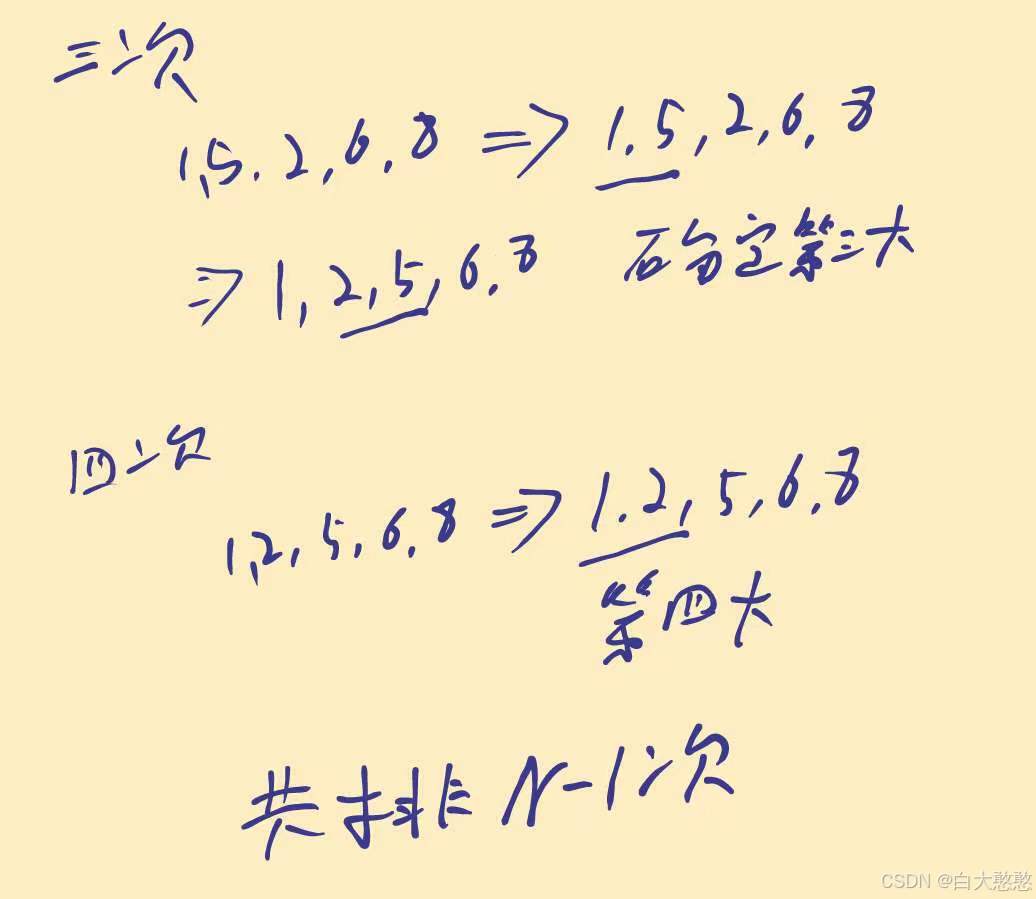 三次
1,5.2,6,8 => 1,5,2,6,8
=> 1,2,5,6,8 确定第三大
四次
1,2,5,6,8 => 1.2,5,6,8
第四大
共排N-1次
CSDN @白大憨憨